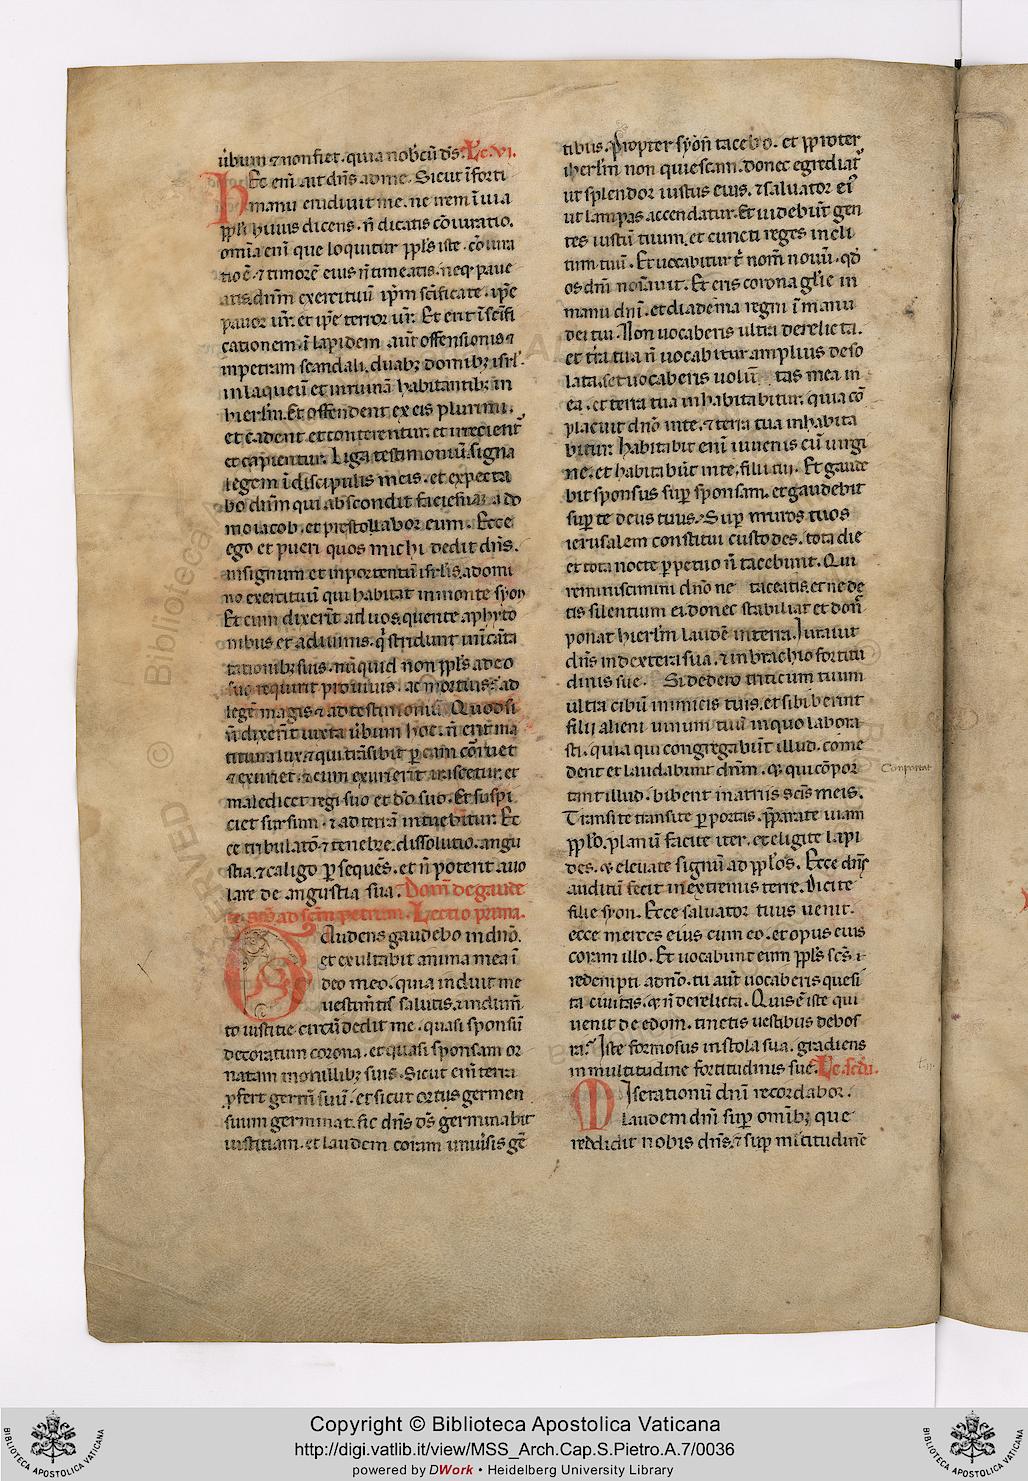 ủbum ⁊ non fiet. quia nobcũ ds̃. Lc. vi.
Hec eni᷑ ait dñs ad me. Sicut ĩ forti
manu erudiuit me. ne irem ĩ uia
ppl̃i huius dicens. ñ dicatis cõiuratio.
oma̅ eni᷑ que loquitur ppl̃s iste. cõiura
tio ẽ. ⁊ timorẽ eius ñ timeatis. neq; paue
atis. dñm exercituũ ip̃m sc̃ificate. ip̃e
pauor ur̃. et ip̃e terror ur̃. Et erit ĩ sc̃ifi
cationem. ĩ lapidem aut̃ offensionis ⁊
in petram scandali. duab; domib; isrl̃.
in laqueũ et in ruinã habitantib; in
hierl̃m. Et offendent ex eis plurimi.
et cadent et conterentur. et irretient̃
et capientur. Liga testimoniũ. signa
legem ĩ discipulis meis. et expecta
bo dñm qui abscondit faciẽ suã a do
mo iacob. et prestollabor eum. Ecce
ego et pueri quos michi dedit dñs.
in signum et in portentũ isrl̃. a domi
no exercituũ qui habitat in monte syon
Et cum dixerĩt ad uos. querite a phyto
nibus et a diuinis. q̃ stridunt in ĩcãta
tationib; suis. nũquid non ppl̃s a deo
suo requirit pro uiuis. ac mortuis. ad
legẽ magis ⁊ ad testimoniũ. Quod si
ñ dixerĩt iuxta ủbum hoc. ñ erit ma
titina lux. ⁊ qui trãsibit p̱ eam cõruet
⁊ exuriet. ⁊ cum exurierit irascetur. et
maledicet regi suo et dõ suo. Et suspi
ciet sursum. ⁊ ad terrã intuebitur. Et
ce tribulatõ. ⁊ tenebre. dissolutio. angu
stia. ⁊ caligo p̱sequẽs. et ñ poterit auo
lare de angustia sua. Dom̃ de gaude
te. Stõ ad sc̃m petrum. Lectio prima.
Gaudens gaudebo in dño.
et exultabit anima mea ĩ
deo meo. quia induit me
uestim̃tis salutis. ⁊ indum̃
to iustitie circũdedit me. quasi sponsũ
decoratum corona. et quasi sponsam or
natam monilib; suis. Sicut eni᷑ terra
ꝓfert germ̃ suũ. et sicut ortus germen
suum germinat. sic dñs ds̃ germinabit
iustitiam. et laudem coram uniũsis gẽ
tibus. Propter syõn tacebo. et propter
iherl̃m non quiescam. donec egrediat̃
ut splendor iustus eius. ⁊ saluator ei᷑
ut lampas accendatur. Et uidebũt gen
tes iustũ tuum. et cuncti reges incli
tum tuũ. Et uocabitur t̃ nom̃ nouũ. qđ
os dñi noĩauit. Et eris corona gl̃ie in
manu dñi. et diadema regni ĩ manu
dei tui. Non uocaberis ultra derelicta.
et tr̃a tua ñ uocabitur amplius deso
lata. set uocaberis uolũ tas mea in
ea. et terra tua inhabitabitur. quia cõ
placuit dño in te. ⁊ terra tua inhabita
bitur. Habitabit eni᷑ iuuenis cũ uirgi
ne. et habitabũt in te. filii tui. Et gaude
bit sponsus suꝑ sponsam. et gaudebit
suꝑ te deus tuus. Suꝑ muros tuos
ierusalem constitui custodes. tota die
et tota nocte p̱petuo ñ tacebunt. Qui
reminiscimini dño ne taceatis. et ne de
tis silentium ei. donec stabiliat et don̄
ponat hierl̃m laudẽ in terra. Iurauit
dñs in dextera sua. ⁊ in brachio fortitu
dinis sue. Si dedero triticum tuum
ultra cibũ inimicis tuis. et si biberint
filii alieni uinum tuũ in quo labora
sti. quia qui congregabũt illud. come
dent et laudabunt dñm. ⁊ qui cõpor
tant illud. bibent in atriis scĩs meis.
Transite transite p̱ portas. p̃parate uiam
ppl̃o. planũ facite iter. et eligite lapi
des. ⁊ eleuate signũ ad ppl̃os. Ecce dñs
auditũ fecit in extremis terre. Dicite
filie syon. Ecce saluator tuus uenit.
ecce merces eius cum eo. et opus eius
coram illo. Et uocabunt eum ppl̃s scs̃ ⁊
redempti a dño. tu aut̃ uocaberis quesi
ta ciuitas. ⁊ ñ derelicta. Quis ẽ iste qui
uenit de edom. tinctis uestibus de bos
ra. Iste formosus in stola sua. gradiens
in multitudine fortitudinis sue. Lc. scđa.
Miserationũ dñi recordabor.
laudem dñi suꝑ omĩb; que
reddidit nobis dñs. ⁊ suꝑ mĩtitudinẽ
Conportat
Copyright © Biblioteca Apostolica Vaticana
http://digi.vatlib.it/view/MSS_Arch.Cap.S.Pietro.A.7/0036
powered by DWork • Heidelberg University Library
BIBLIOTECA APOSTOLICA VATICANA
BIBLIOTECA APOSTOLICA VATICANA